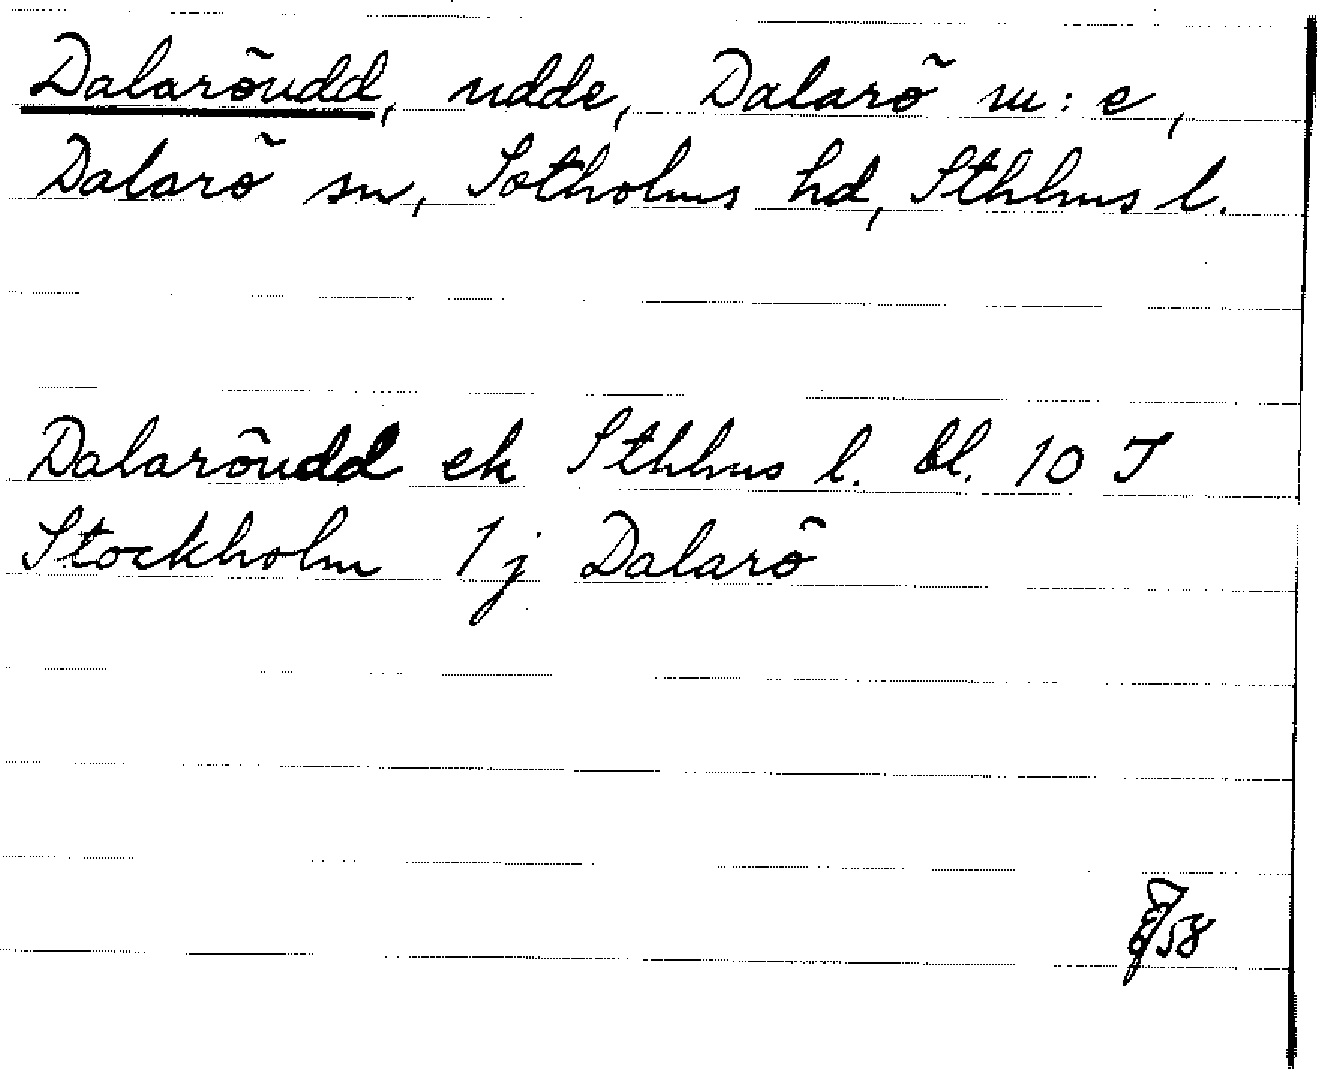 Dalarõudd, udde, Dalarõ m:e,
Dalarõ sn, Sotholms hd, Sthlms l.
Dalarõudd ek Sthlms l. bl. 10 J
Stockholm 1j Dalarõ
58